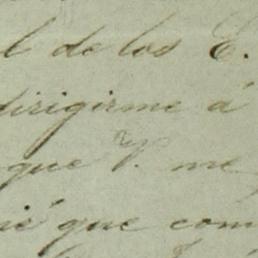 l de los E.
dirigirme á
que V. me
que com